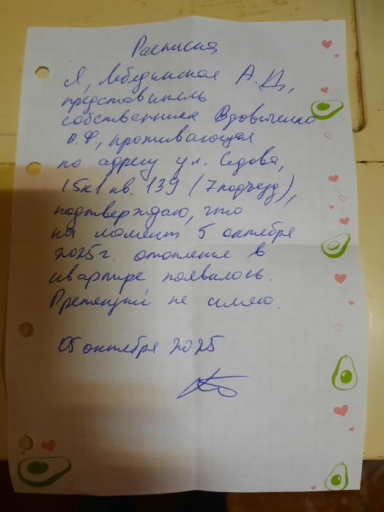 Расписка
Я, Лебединская А.Д.,
представитель
собственника Вдовиченко
В.Ф., проживающая
по адресу ул. Седова,
15к1 кв. 139 (7 подъезд),
подтверждаю, что
на момент 5 октября
2025г. отопление в
квартире появилось.
Претензий не имею.
05 октября 2025